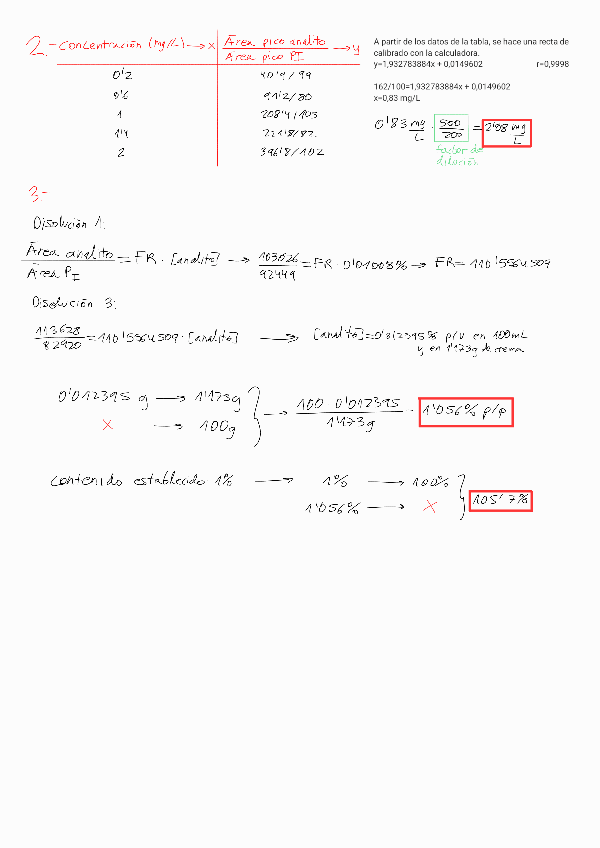 2.- Concentración (mg/L) → x Área pico analito / Área pico PI → y
0'2 40'9/99
0'6 91'2/80
1 208'4/103
1'4 221'8/82
2 396'8/102
A partir de los datos de la tabla, se hace una recta de
calibrado con la calculadora.
y=1,932783884x + 0,0149602 r=0,9998
162/100=1,932783884x + 0,0149602
x=0,83 mg/L
0'83 mg/L · 500/200 = 2'08 mg/L
factor de
dilución
3-
Disolución 1:
Área analito / Área PI = FR · [analito] → 103026/92449 = FR · 0'01008% → FR = 110'5564509
Disolución 3:
113628/82920 = 110'5564509 · [analito] → [analito] = p/v en 100mL
y en 1'173g de crema
0'012395 g → 1'173g
x → 100g
→ 100 0'012395 / 1'173g - 1'056% p/p
contenido establecido 1% → 1% → 100%
1'056% → x
105'7%